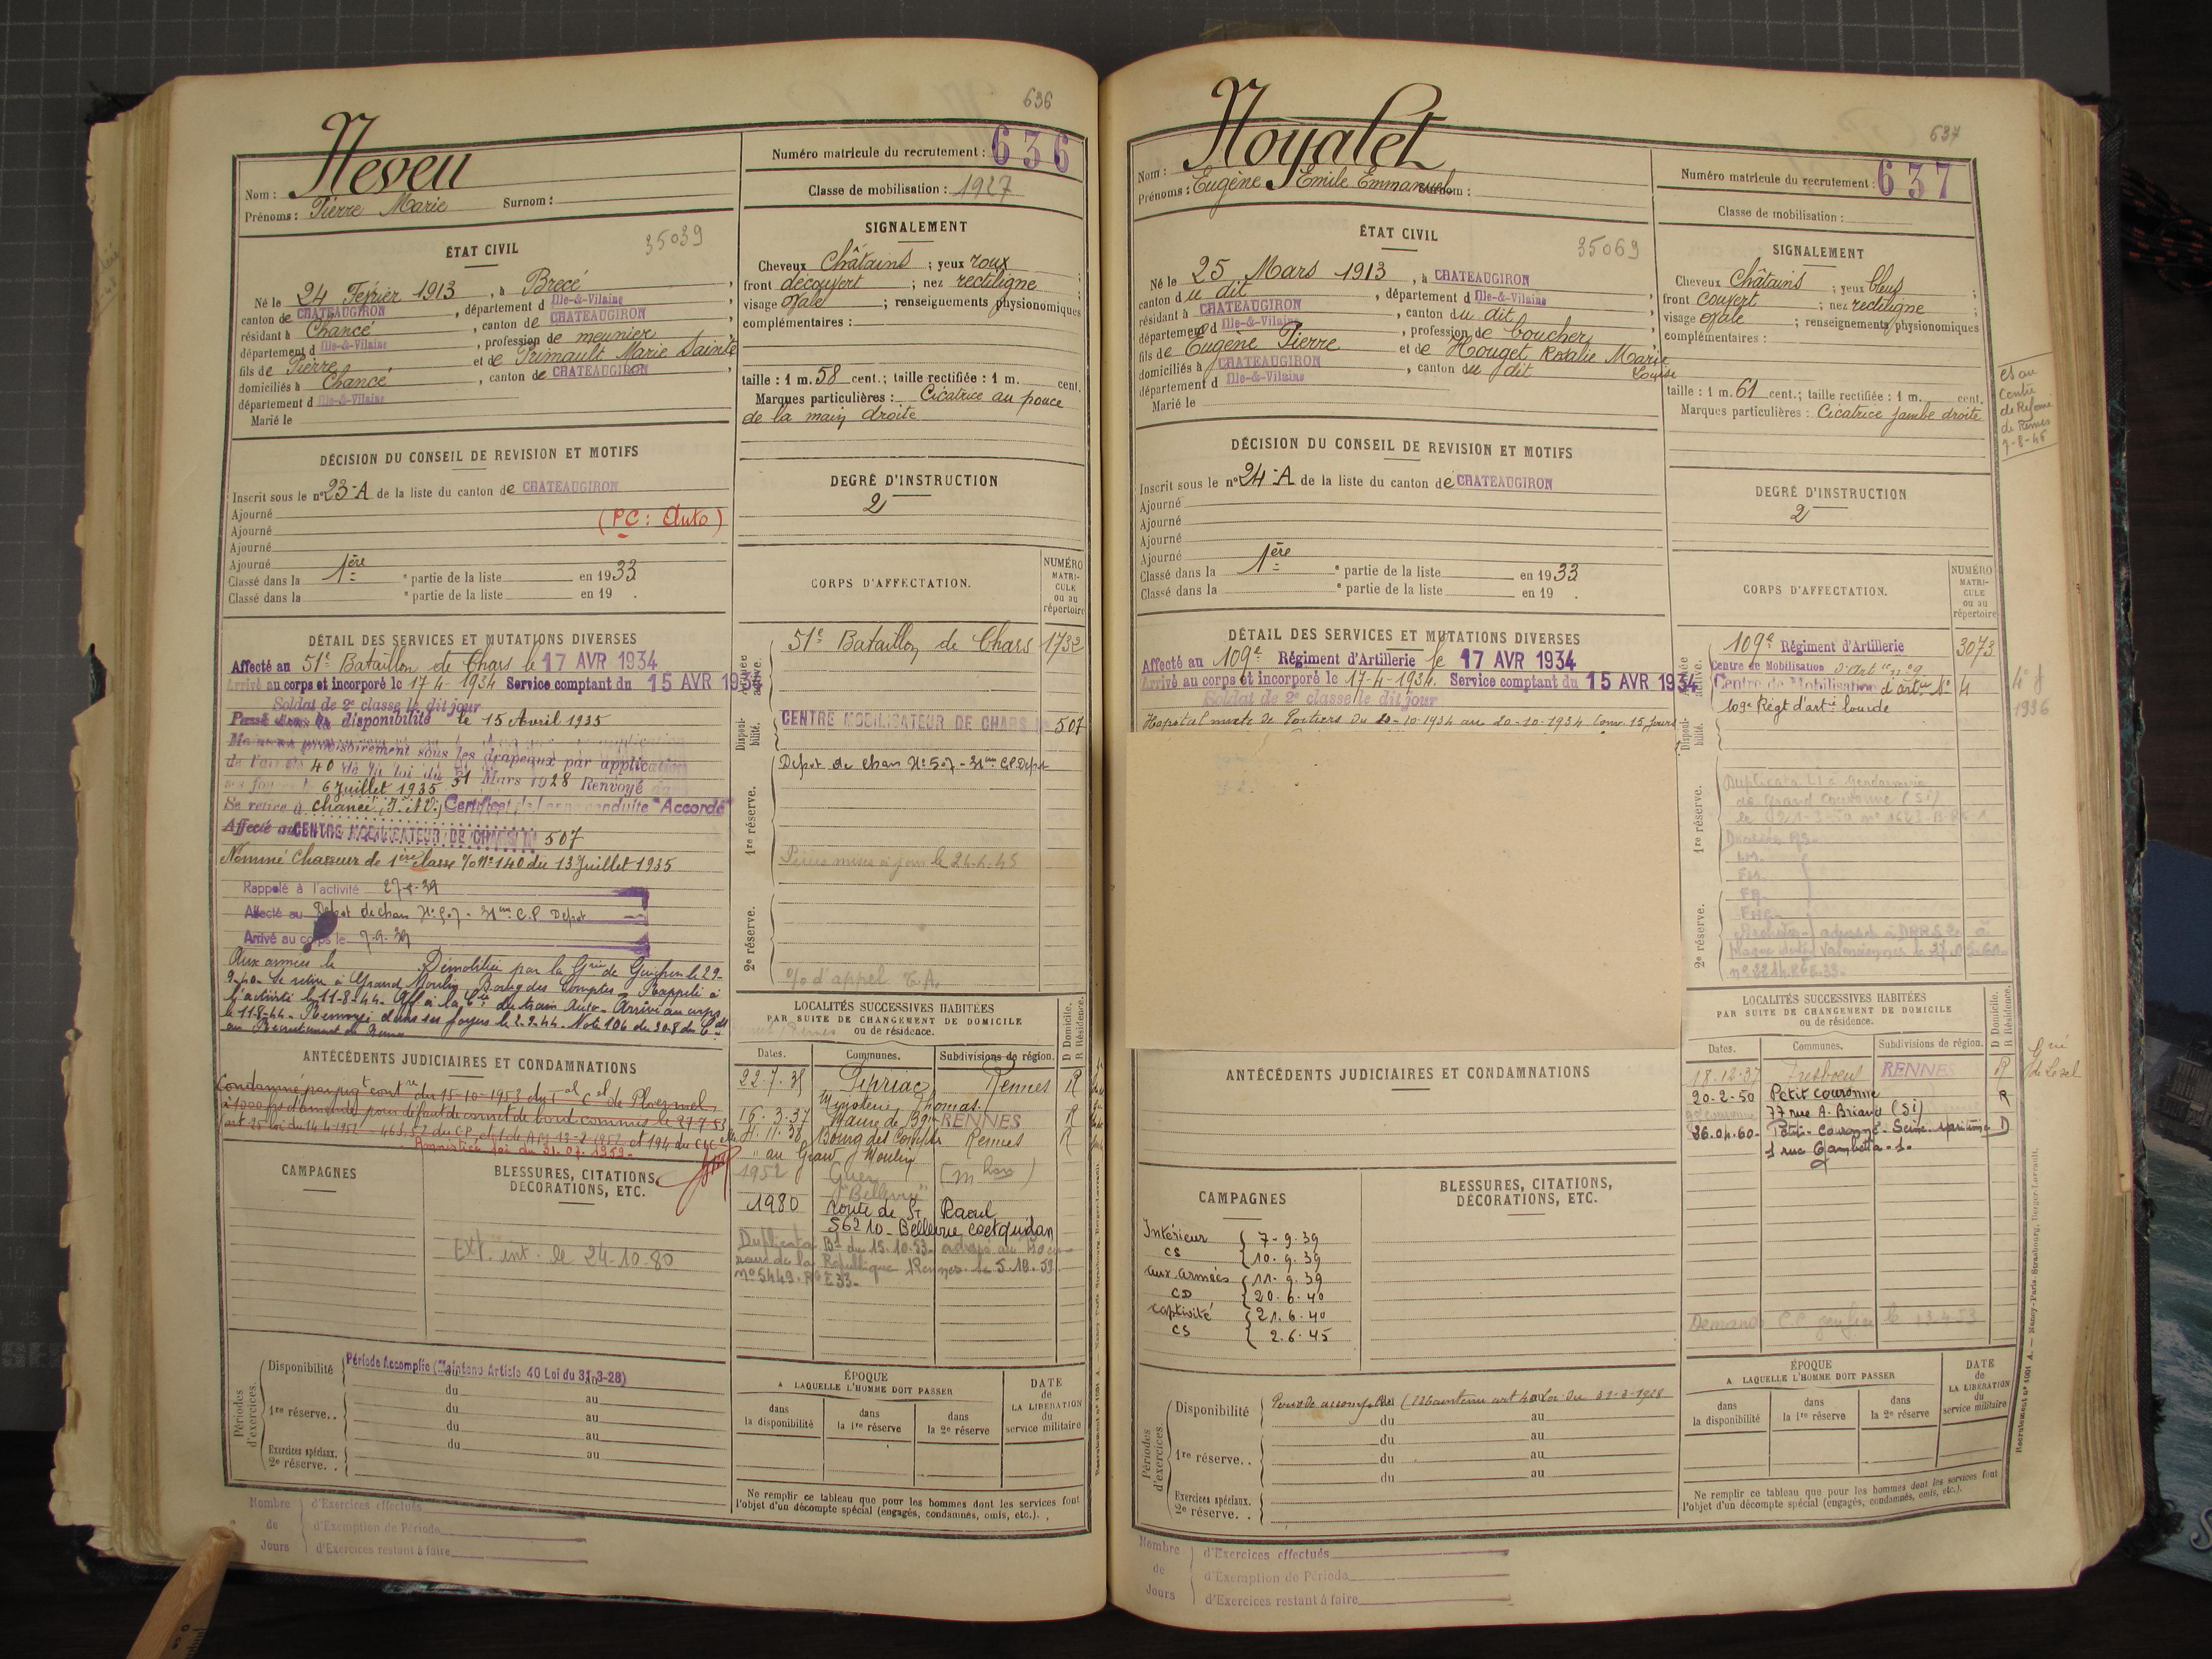 636
Neveu
Nom :
Prénoms : Pierre Marie Surnom :
Numéro matricule du recrutement : 636
Classe de mobilisation : 1927
ÉTAT CIVIL
35039
Né le 24 Février 1913, à Brecé,
canton de CHATEAUGIRON, département d Ille-&-Vilaine
résidant à Chancé, canton de CHATEAUGIRON
département d Ille-&-Vilaine, profession de meunier
fils de Pierre et de Primault Marie Sainte
domiciliés à Chancé, canton de CHATEAUGIRON,
département d Ille-&-Vilaine
Marié le
SIGNALEMENT
Cheveux Châtains ; yeux roux ;
front découvert ; nez rectiligne
visage ovale ; renseignements physionomiques
complémentaires :
taille : 1 m. 58 cent.; taille rectifiée : 1 m. cent.
Marques particulières : Cicatrice au pouce
de la main droite
DÉCISION DU CONSEIL DE REVISION ET MOTIFS
Inscrit sous le n° 23-A de la liste du canton de CHATEAUGIRON
Ajourné
Ajourné (PC : Auto)
Ajourné
Ajourné
Classé dans la 1ère partie de la liste en 1933
Classé dans la e partie de la liste en 19 .
DEGRÉ D'INSTRUCTION
2
CORPS D'AFFECTATION.
NUMÉRO MATRICULE ou au répertoire
51e Bataillon de Chars 1732
CENTRE MOBILISATEUR DE CHARS N 507
Depot de chars N° 507 - 31me C.P. Depot
Pièces mises à jour le 24-4-45
% d'appel T.A.
Disponibilité.
1re réserve.
2e réserve.
DÉTAIL DES SERVICES ET MUTATIONS DIVERSES
Affecté au 51e Bataillon de Chars le 17 AVR 1934
Arrivé au corps et incorporé le 17-4-1934 Service comptant du 15 AVR 1934
Soldat de 2e classe le dit jour
Passé dans la disponibilité le 15 Avril 1935
Maintenu provisoirement sous les drapeaux par application
de l'article 40 de la loi du 31 Mars 1928 Renvoyé dans
ses foyers le 6 Juillet 1935
Se retire à Chancé (I. et V.) Certificat de bonne conduite "Accordé"
Affecté au CENTRE MOBILISATEUR DE CHARS N 507
Nommé Chasseur de 1ère classe % N° 140 du 13 Juillet 1935
Rappelé à l'activité
Affecté au Depot de chars N° 507 - 31me C.P. Depot
Arrivé au corps le 7-9-39
Aux armées le Démobilisé par la Gie de Guichen le 29-
9-40. Se retire à Grand Moulin Bourg des Comptes - Rappelé à
l'activité le 11-8-44. Aff à la Cie du train Auto - Arrivé au corps
le 11-8-44 - Renvoyé dans ses foyers le 2-9-44. Note 106 du 30-8 du Cdt
au Recrutement de Rennes
LOCALITÉS SUCCESSIVES HABITÉES
PAR SUITE DE CHANGEMENT DE DOMICILE
ou de résidence.
Dates. Communes. Subdivisions de région. D Domicile. R Résidence.
22-7-35 Pipriac Rennes R
Minoterie Thomas
16-3-37 Maure de Bgne RENNES R
4-11-38 Bourg des Comptes Rennes R
" au Grand Moulin
1952 Guer (Mhan)
"Bellevue"
1980 route de St Raoul
56210 - Bellevue Coetquidan
Duplicata
rue de la République Rennes le 5.10.59
n° 5449. R
ANTÉCÉDENTS JUDICIAIRES ET CONDAMNATIONS
Condamné par jugt contre du 15-10-1953 du Tal Cel de Ploermel
à 1000 frs d'amende pour défaut de carnet de bord commis le 27-7-53
Amnistié loi du 31.07.1959.
CAMPAGNES
BLESSURES, CITATIONS, DÉCORATIONS, ETC.
Ext. int. le 24-10-80
Périodes d'exercices.
Disponibilité Période Accomplie (Maintenu Article 40 Loi du 31-3-28)
du au
1re réserve.. du au
du au
du au
Exercices spéciaux.
2e réserve. .
ÉPOQUE
A LAQUELLE L'HOMME DOIT PASSER
dans la disponibilité
dans la 1re réserve
dans la 2e réserve
DATE de LA LIBÉRATION du service militaire
Ne remplir ce tableau que pour les hommes dont les services font
l'objet d'un décompte spécial (engagés, condamnés, omis, etc.).
Nombre de Jours
d'Exercices effectués
d'Exemption de Période
d'Exercices restant à faire
637
Noyalet
Nom :
Prénoms : Eugène Emile Emmanuel Surnom :
Numéro matricule du recrutement : 637
Classe de mobilisation :
ÉTAT CIVIL
35069
Né le 25 Mars 1913, à CHATEAUGIRON
canton du dit, département d Ille-&-Vilaine
résidant à CHATEAUGIRON, canton du dit
département d Ille-&-Vilaine, profession de boucher
fils de Eugène Pierre et de Houget Rosalie Marie Louise
domiciliés à CHATEAUGIRON, canton du dit
département d Ille-&-Vilaine
Marié le
SIGNALEMENT
Cheveux Châtains ; yeux bleus ;
front couvert ; nez rectiligne
visage ovale ; renseignements physionomiques
complémentaires :
taille : 1 m. 61 cent.; taille rectifiée : 1 m. cent.
Marques particulières : Cicatrice jambe droite
Centre de Réforme de Rennes
DÉCISION DU CONSEIL DE REVISION ET MOTIFS
Inscrit sous le n° 24-A de la liste du canton de CHATEAUGIRON
Ajourné
Ajourné
Ajourné
Ajourné
Classé dans la 1ère partie de la liste en 1933
Classé dans la e partie de la liste en 19 .
DEGRÉ D'INSTRUCTION
2
CORPS D'AFFECTATION.
NUMÉRO MATRICULE ou au répertoire
109e Régiment d'Artillerie 3073
Centre de Mobilisation d'Artie n° 9
Centre de Mobilisation d'artie N° 4
109e Régt d'artie lourde
1936
Duplicata
de Grand Couronne (SI)
1re réserve.
2e réserve.
DÉTAIL DES SERVICES ET MUTATIONS DIVERSES
Affecté au 109e Régiment d'Artillerie le 17 AVR 1934
Arrivé au corps et incorporé le 17-4-1934. Service comptant du 15 AVR 1934
Soldat de 2e classe le dit jour
Hopital mixte de Poitiers du 10-10-1934 au 20-10-1934 Conv. 15 jours
LOCALITÉS SUCCESSIVES HABITÉES
PAR SUITE DE CHANGEMENT DE DOMICILE
ou de résidence.
Dates. Communes. Subdivisions de région. D Domicile. R Résidence.
18-12-37 RENNES R
20-2-50 Petit Couronne R
77 rue A. Briand (SI)
26.04.60 Petit-Couronne - Seine Maritime D
1 rue Gambetta
Demande
ANTÉCÉDENTS JUDICIAIRES ET CONDAMNATIONS
CAMPAGNES
Intérieur 7-9-39
CS 10-9-39
aux armées 11-9-39
CD 20-6-40
captivité 21-6-40
CS 2-6-45
BLESSURES, CITATIONS, DÉCORATIONS, ETC.
Périodes d'exercices.
Disponibilité Période accomplie (Maintenu art 40 Loi du 31-3-1928
du au
1re réserve.. du au
du au
du au
Exercices spéciaux.
2e réserve. .
ÉPOQUE
A LAQUELLE L'HOMME DOIT PASSER
dans la disponibilité
dans la 1re réserve
dans la 2e réserve
DATE de LA LIBÉRATION du service militaire
Ne remplir ce tableau que pour les hommes dont les services font
l'objet d'un décompte spécial (engagés, condamnés, omis, etc.).
Nombre de Jours
d'Exercices effectués
d'Exemption de Période
d'Exercices restant à faire